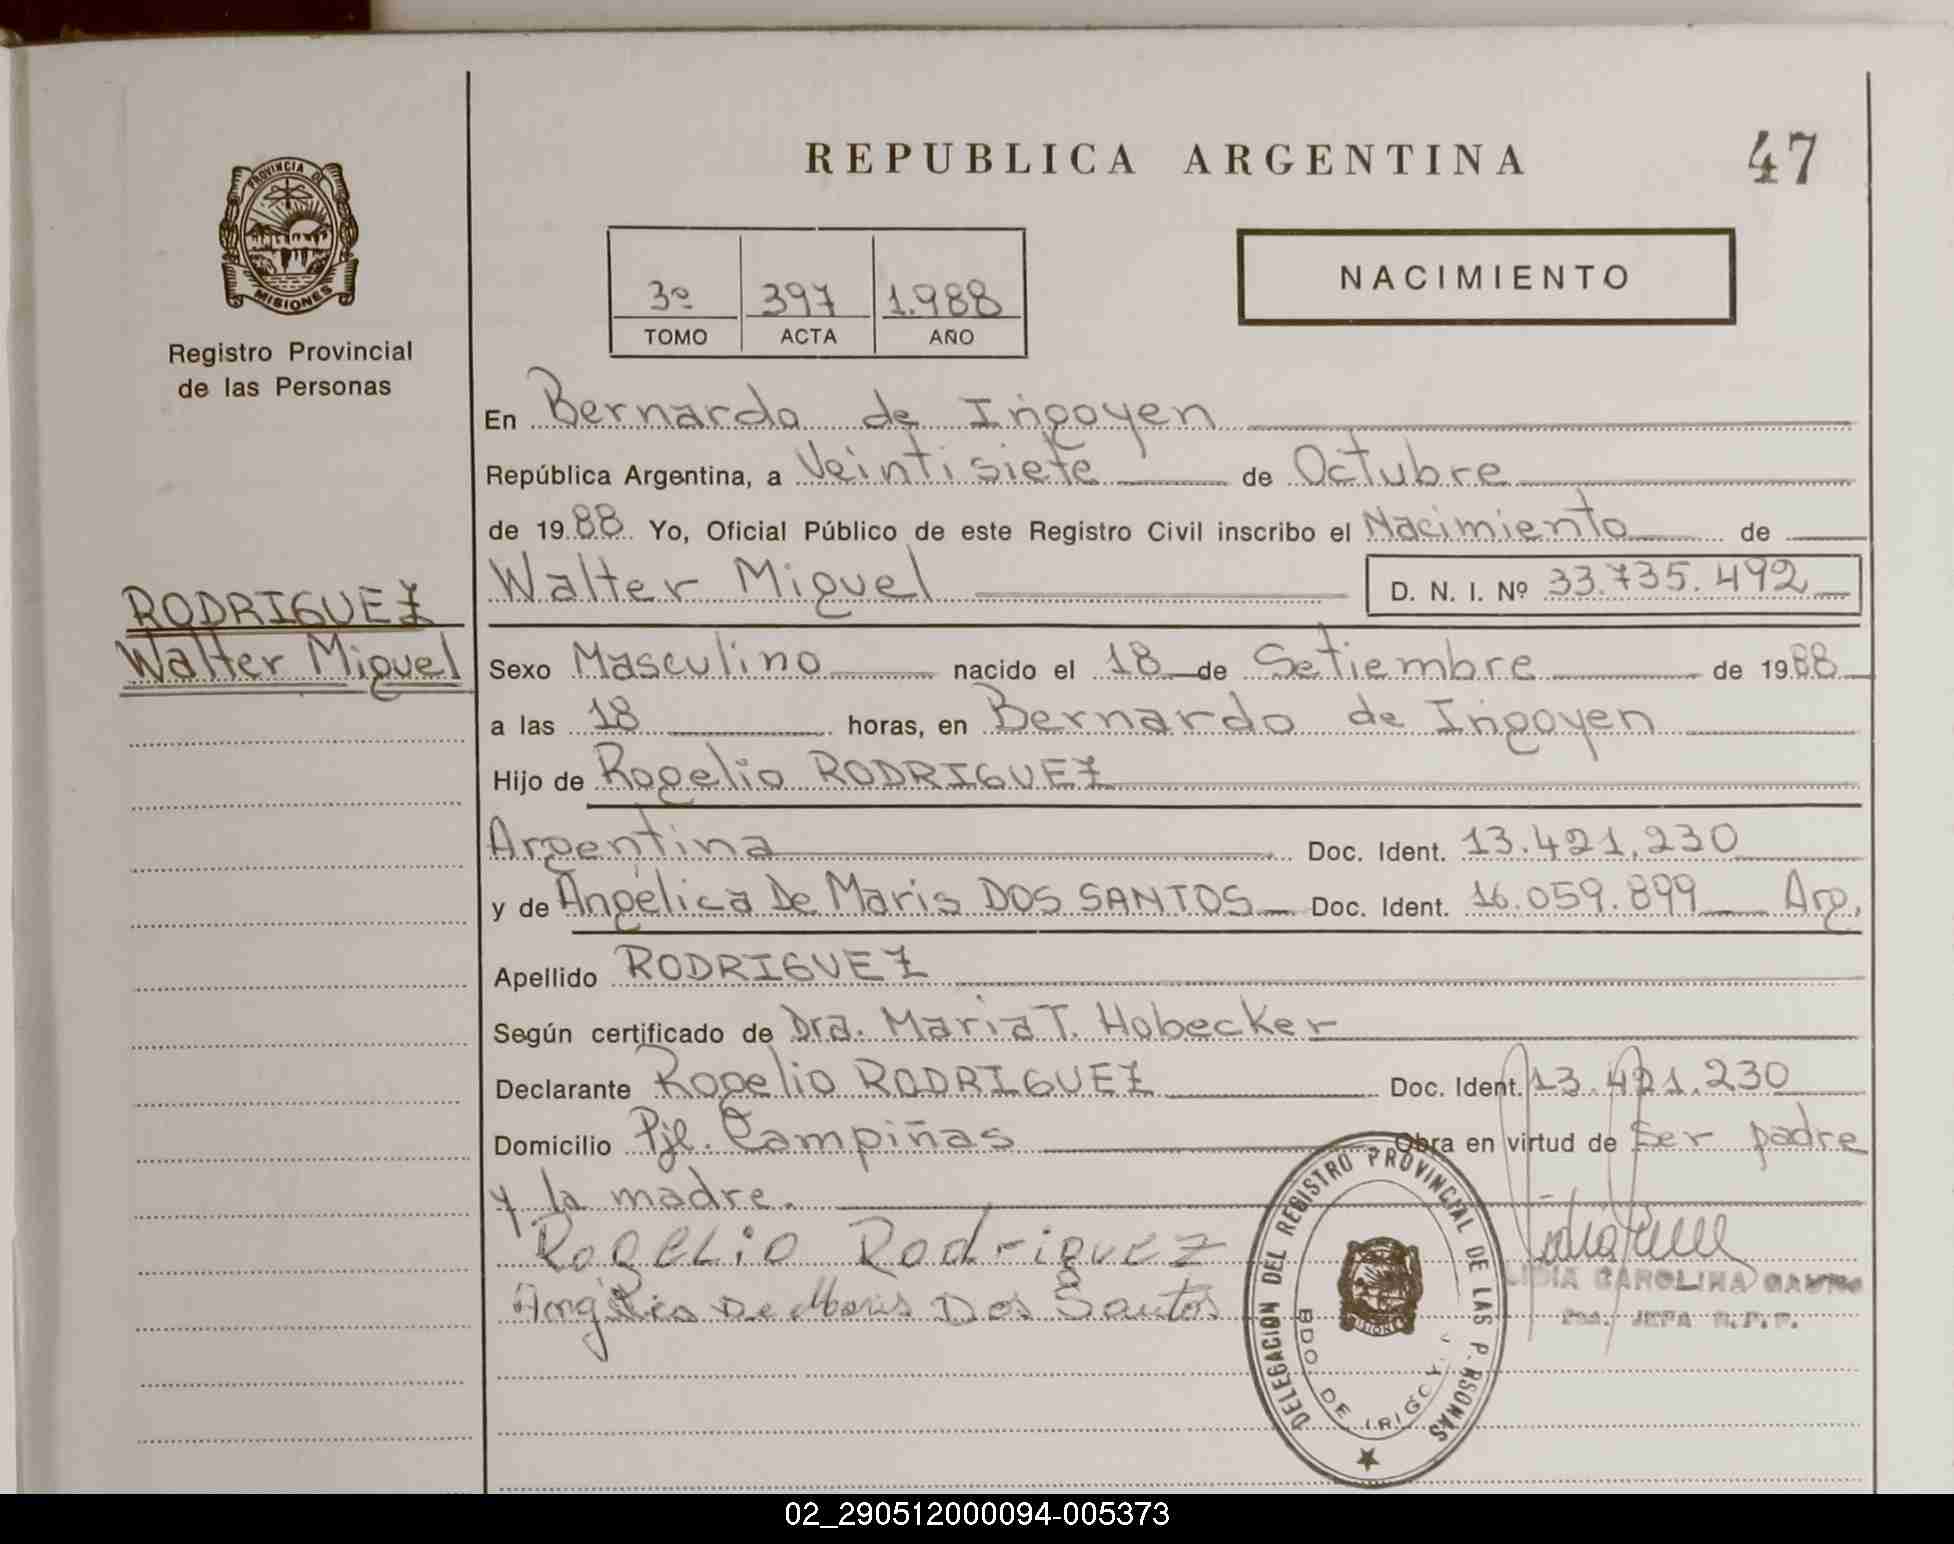 PROVINCIA DE
MISIONES
Registro Provincial
de las Personas
RODRIGUEZ
Walter Miguel
REPUBLICA ARGENTINA
47
3º 397 1.988
TOMO ACTA AÑO
NACIMIENTO
En Bernardo de Irigoyen
República Argentina, a Veintisiete de Octubre
de 1988 Yo, Oficial Público de este Registro Civil inscribo el Nacimiento de
Walter Miguel D. N. I. Nº 33.735.492
Sexo Masculino nacido el 18 de Setiembre de 1988
a las 18 horas, en Bernardo de Irigoyen
Hijo de Rogelio RODRIGUEZ
Argentina Doc. Ident. 13.421.230
y de Angélica De Maris DOS SANTOS Doc. Ident. 16.059.899 Arg.
Apellido RODRIGUEZ
Según certificado de Dra. Maria T. Hobecker
Declarante Rogelio RODRIGUEZ Doc. Ident. 13.421.230
Domicilio Pje. Campiñas Obra en virtud de Ser padre
y la madre.
Rogelio Rodriguez
Angélica De Maris Dos Santos
DELEGACION DEL REGISTRO PROVINCIAL DE LAS P RSONAS
BDO DE IRIGOY
MISIONES
LIDIA CAROLINA
JEFA R.P.P.
02_290512000094-005373